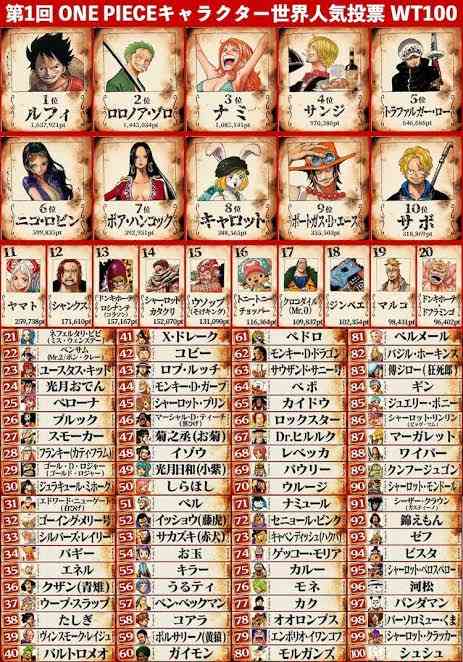 第1回 ONE PIECEキャラクター世界人気投票 WT100
1位
ルフィ
1,637,921pt
2位
ロロノア・ゾロ
1,445,034pt
3位
ナミ
4位
サンジ
5位
トラファルガー・ロー
6位
ニコ・ロビン
7位
ボア・ハンコック
392,951pt
8位
キャロット
9位
ポートガス・D・エース
10位
サボ
11
ヤマト
259,738pt
12
シャンクス
171,610pt
13
ドンキホーテ・
ロシナンテ
(コラソン)
157,167pt
14
シャーロット・
カタクリ
15
ウソップ
(そげキング)
131,090pt
16
トニートニー・
チョッパー
17
クロコダイル
(Mr.0)
109,837pt
18
ジンベエ
19
マルコ
98,431pt
20
ドンキホーテ・
ドフラミンゴ
21 ネフェルタリ・ビビ
(ミス・ウェンズデー)
22 ベンサム
(Mr.2ボン・クレー)
23 ユースタス・キッド
24 光月おでん
25 ペローナ
26 ブルック
27 スモーカー
28 フランキー(カティ・フラム)
29 ゴール・D・ロジャー
(ゴールド・ロジャー)
30 ジュラキュール・ミホーク
31 エドワード・ニューゲート
(白ひげ)
32 ゴーイング・メリー号
33 シルバーズ・レイリー
34 バギー
35 エネル
36 クザン(青雉)
37 ウープ・スラップ
38 たしぎ
39 ヴィンスモーク・レイジュ
40 バルトロメオ
41 X・ドレーク
42 コビー
43 ロブ・ルッチ
44 モンキー・D・ガープ
45 シャーロット・プリン
46 マーシャル・D・ティーチ
(黒ひげ)
47 菊之丞(お菊)
48 イゾウ
49 光月日和(小紫)
50 しらほし
51 ペル
52 イッショウ(藤虎)
53 サカズキ(赤犬)
54 お玉
55 キラー
56 うるティ
57 ベン・ベックマン
58 コアラ
59 ボルサリーノ(黄猿)
60 ガイモン
61 ペドロ
62 モンキー・D・ドラゴン
63 サウザンド・サニー号
64 ベポ
65 カイドウ
66 ロックスター
67 Dr.ヒルルク
68 レベッカ
69 パウリー
70 ウルージ
71 ナミュール
72 セニョール・ピンク
73 キャベンディッシュ(ハクバ)
74 ゲッコー・モリア
75 カルー
76 モネ
77 カク
78 オオロンブス
79 エンポリオ・イワンコフ
80 モルガンズ
81 ベルメール
82 バジル・ホーキンス
83 傳ジロー(狂死郎)
84 ギン
85 ジュエリー・ボニー
86 シャーロット・リンリン
(ビッグ・マム)
87 マーガレット
88 ワイパー
89 クンフージュゴン
90 シャーロット・モンドール
91 シーザー・クラウン
92 錦えもん
93 ゼフ
94 ビスタ
95 シャーロット・ペロスペロー
96 河松
97 パンダマン
98 バーソロミュー・くま
99 シャーロット・クラッカー
100 シュシュ